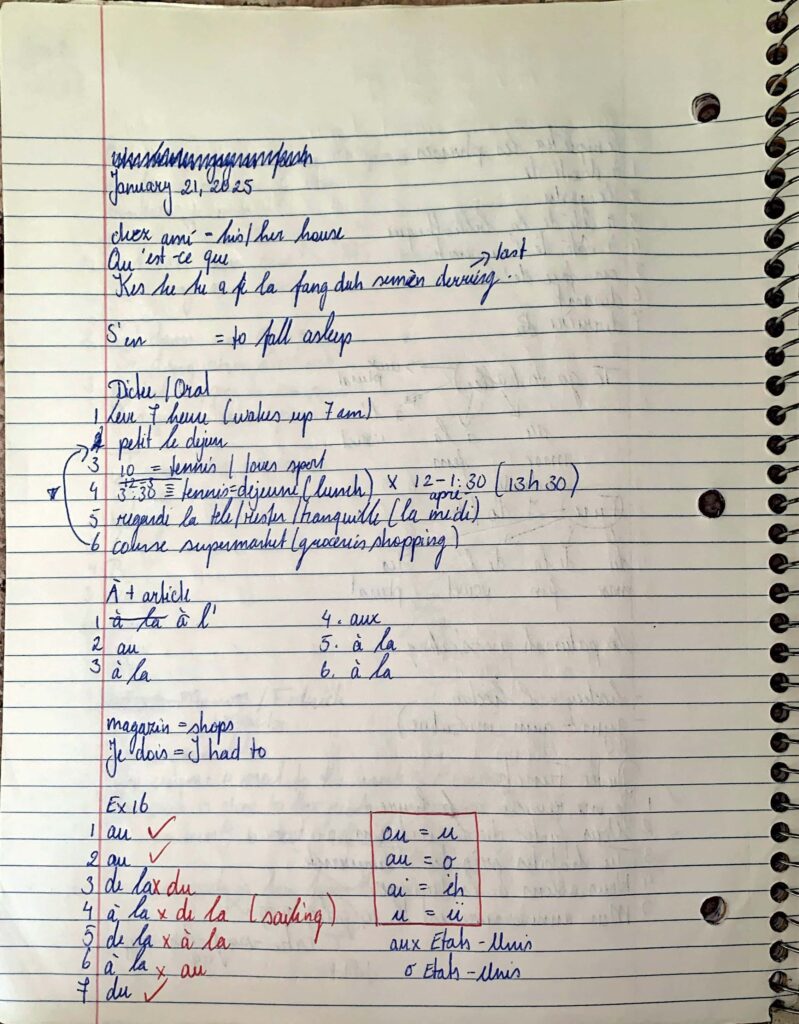 January 21, 2025
chez ami - his/her house
Qu'est-ce que
→ last
Kes ke tu a fé la fang duh semèn derniérg.
S'en = to fall asleep
Dictee / Oral
1 leve 7 heure (wakes up 7 am)
2 petit le dejeun
3 10 = tennis / loves sport
12-3
4 3:30 = tennis=dejeuné (lunch) x 12-1:30 (13h30)
apré-
5 regardi la tele/rester/tranquille (la midi)
6 course supermarket (groceries shopping)
À + article
1 à la à l' 4. aux
2 au 5. à la
3 à la 6. à la
magazin = shops
Je dois = I had to
Ex 16
1 au ✓ ou = u
2 au ✓ au = o
3 de la x du ai = èh
4 à la x de la (sailing) u = ü
5 de la x à la aux Etats-Unis
6 à la x au o Etats-Unis
7 du ✓